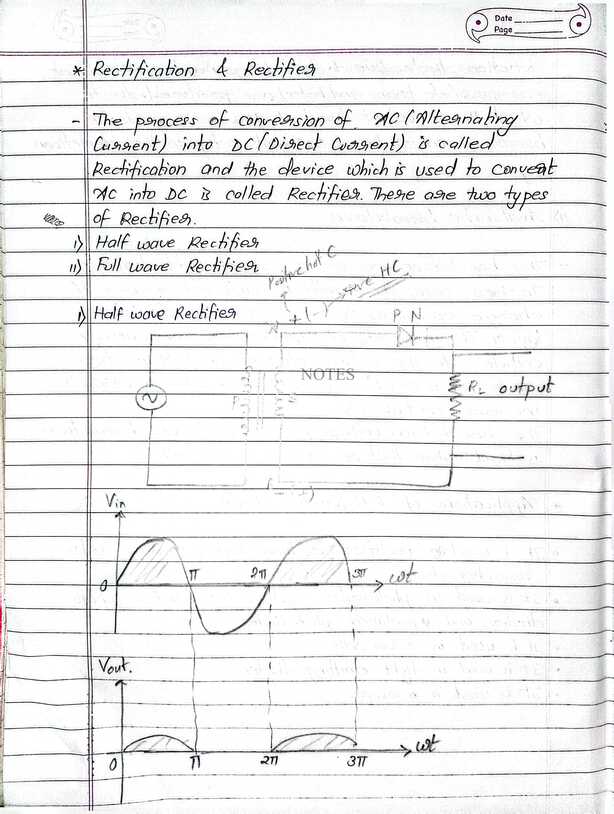 Date
Page
* Rectification & Rectifier
- The process of conversion of AC (Alternating
Current) into DC (Direct Current) is called
Rectification and the device which is used to convert
AC into DC is called Rectifier. There are two types
of Rectifier.
i) Half wave Rectifier
ii) Full wave Rectifier
Positive half C
+ve HC
+(-)
i) Half wave Rectifier
P N
NOTES
RL output
Vin
0 π 2π 3π ωt
Vout.
0 π 2π 3π ωt